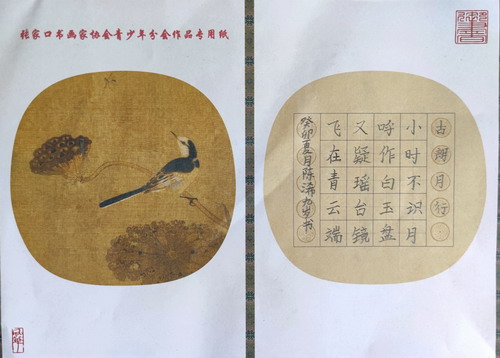 张家口书画家协会青少年分会作品专用纸
古朗月行
小时不识月
呼作白玉盘
又疑瑶台镜
飞在青云端
癸卯夏月陈浠九岁书